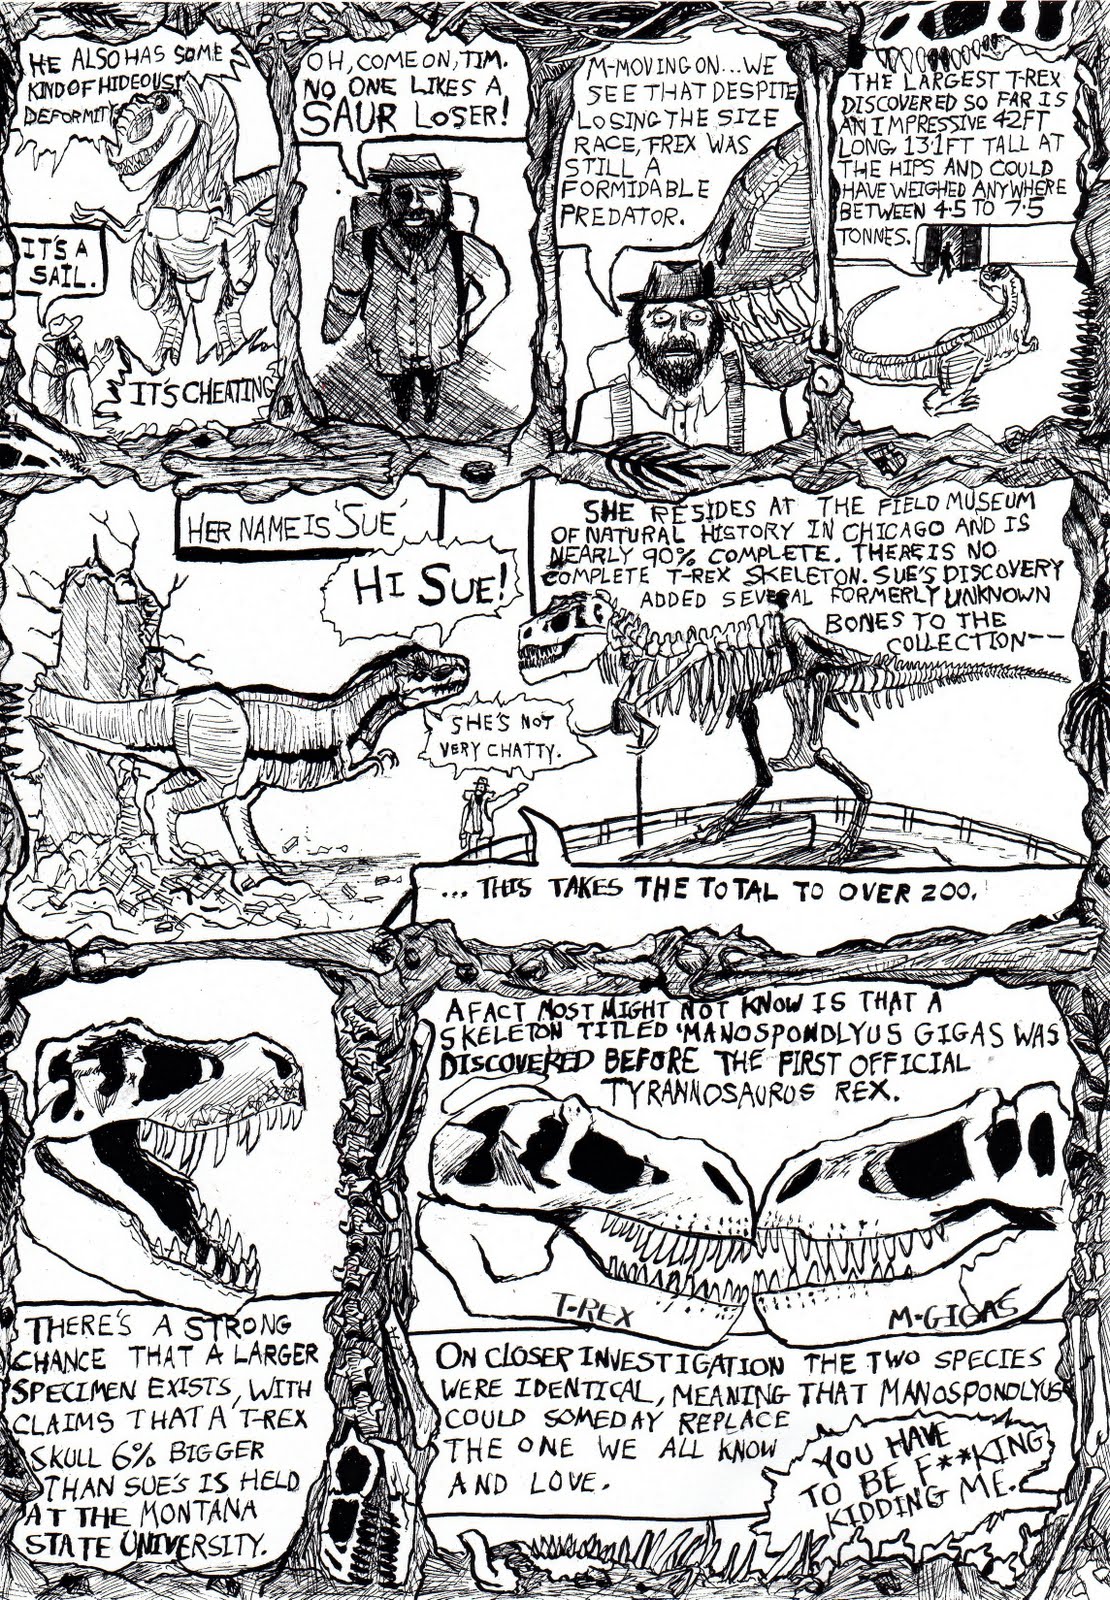 HE ALSO HAS SOME
KIND OF HIDEOUS
DEFORMITY
IT'S A
SAIL.
IT'S CHEATING
OH, COME ON, TIM.
NO ONE LIKES A
SAUR LOSER!
M-MOVING ON...WE
SEE THAT DESPITE
LOSING THE SIZE
RACE, T-REX WAS
STILL A
FORMIDABLE
PREDATOR.
THE LARGEST T-REX
DISCOVERED SO FAR IS
AN IMPRESSIVE 42FT
LONG, 13.1FT TALL AT
THE HIPS AND COULD
HAVE WEIGHED ANYWHERE
BETWEEN 4.5 TO 7.5
TONNES.
HER NAME IS 'SUE'
HI SUE!
SHE'S NOT
VERY CHATTY.
SHE RESIDES AT THE FIELD MUSEUM
OF NATURAL HISTORY IN CHICAGO AND IS
NEARLY 90% COMPLETE. THERE IS NO
COMPLETE T-REX SKELETON. SUE'S DISCOVERY
ADDED SEVERAL FORMERLY UNKNOWN
BONES TO THE
COLLECTION--
... THIS TAKES THE TOTAL TO OVER 200.
THERE'S A STRONG
CHANCE THAT A LARGER
SPECIMEN EXISTS, WITH
CLAIMS THAT A T-REX
SKULL 6% BIGGER
THAN SUE'S IS HELD
AT THE MONTANA
STATE UNIVERSITY.
A FACT MOST MIGHT NOT KNOW IS THAT A
SKELETON TITLED 'MANOSPONDLYUS GIGAS WAS
DISCOVERED BEFORE THE FIRST OFFICIAL
TYRANNOSAUROS REX.
T-REX
M-GIGAS
ON CLOSER INVESTIGATION THE TWO SPECIES
WERE IDENTICAL, MEANING THAT MANOSPONDLYUS
COULD SOMEDAY REPLACE
THE ONE WE ALL KNOW
AND LOVE.
YOU HAVE
TO BE F**KING
KIDDING ME.